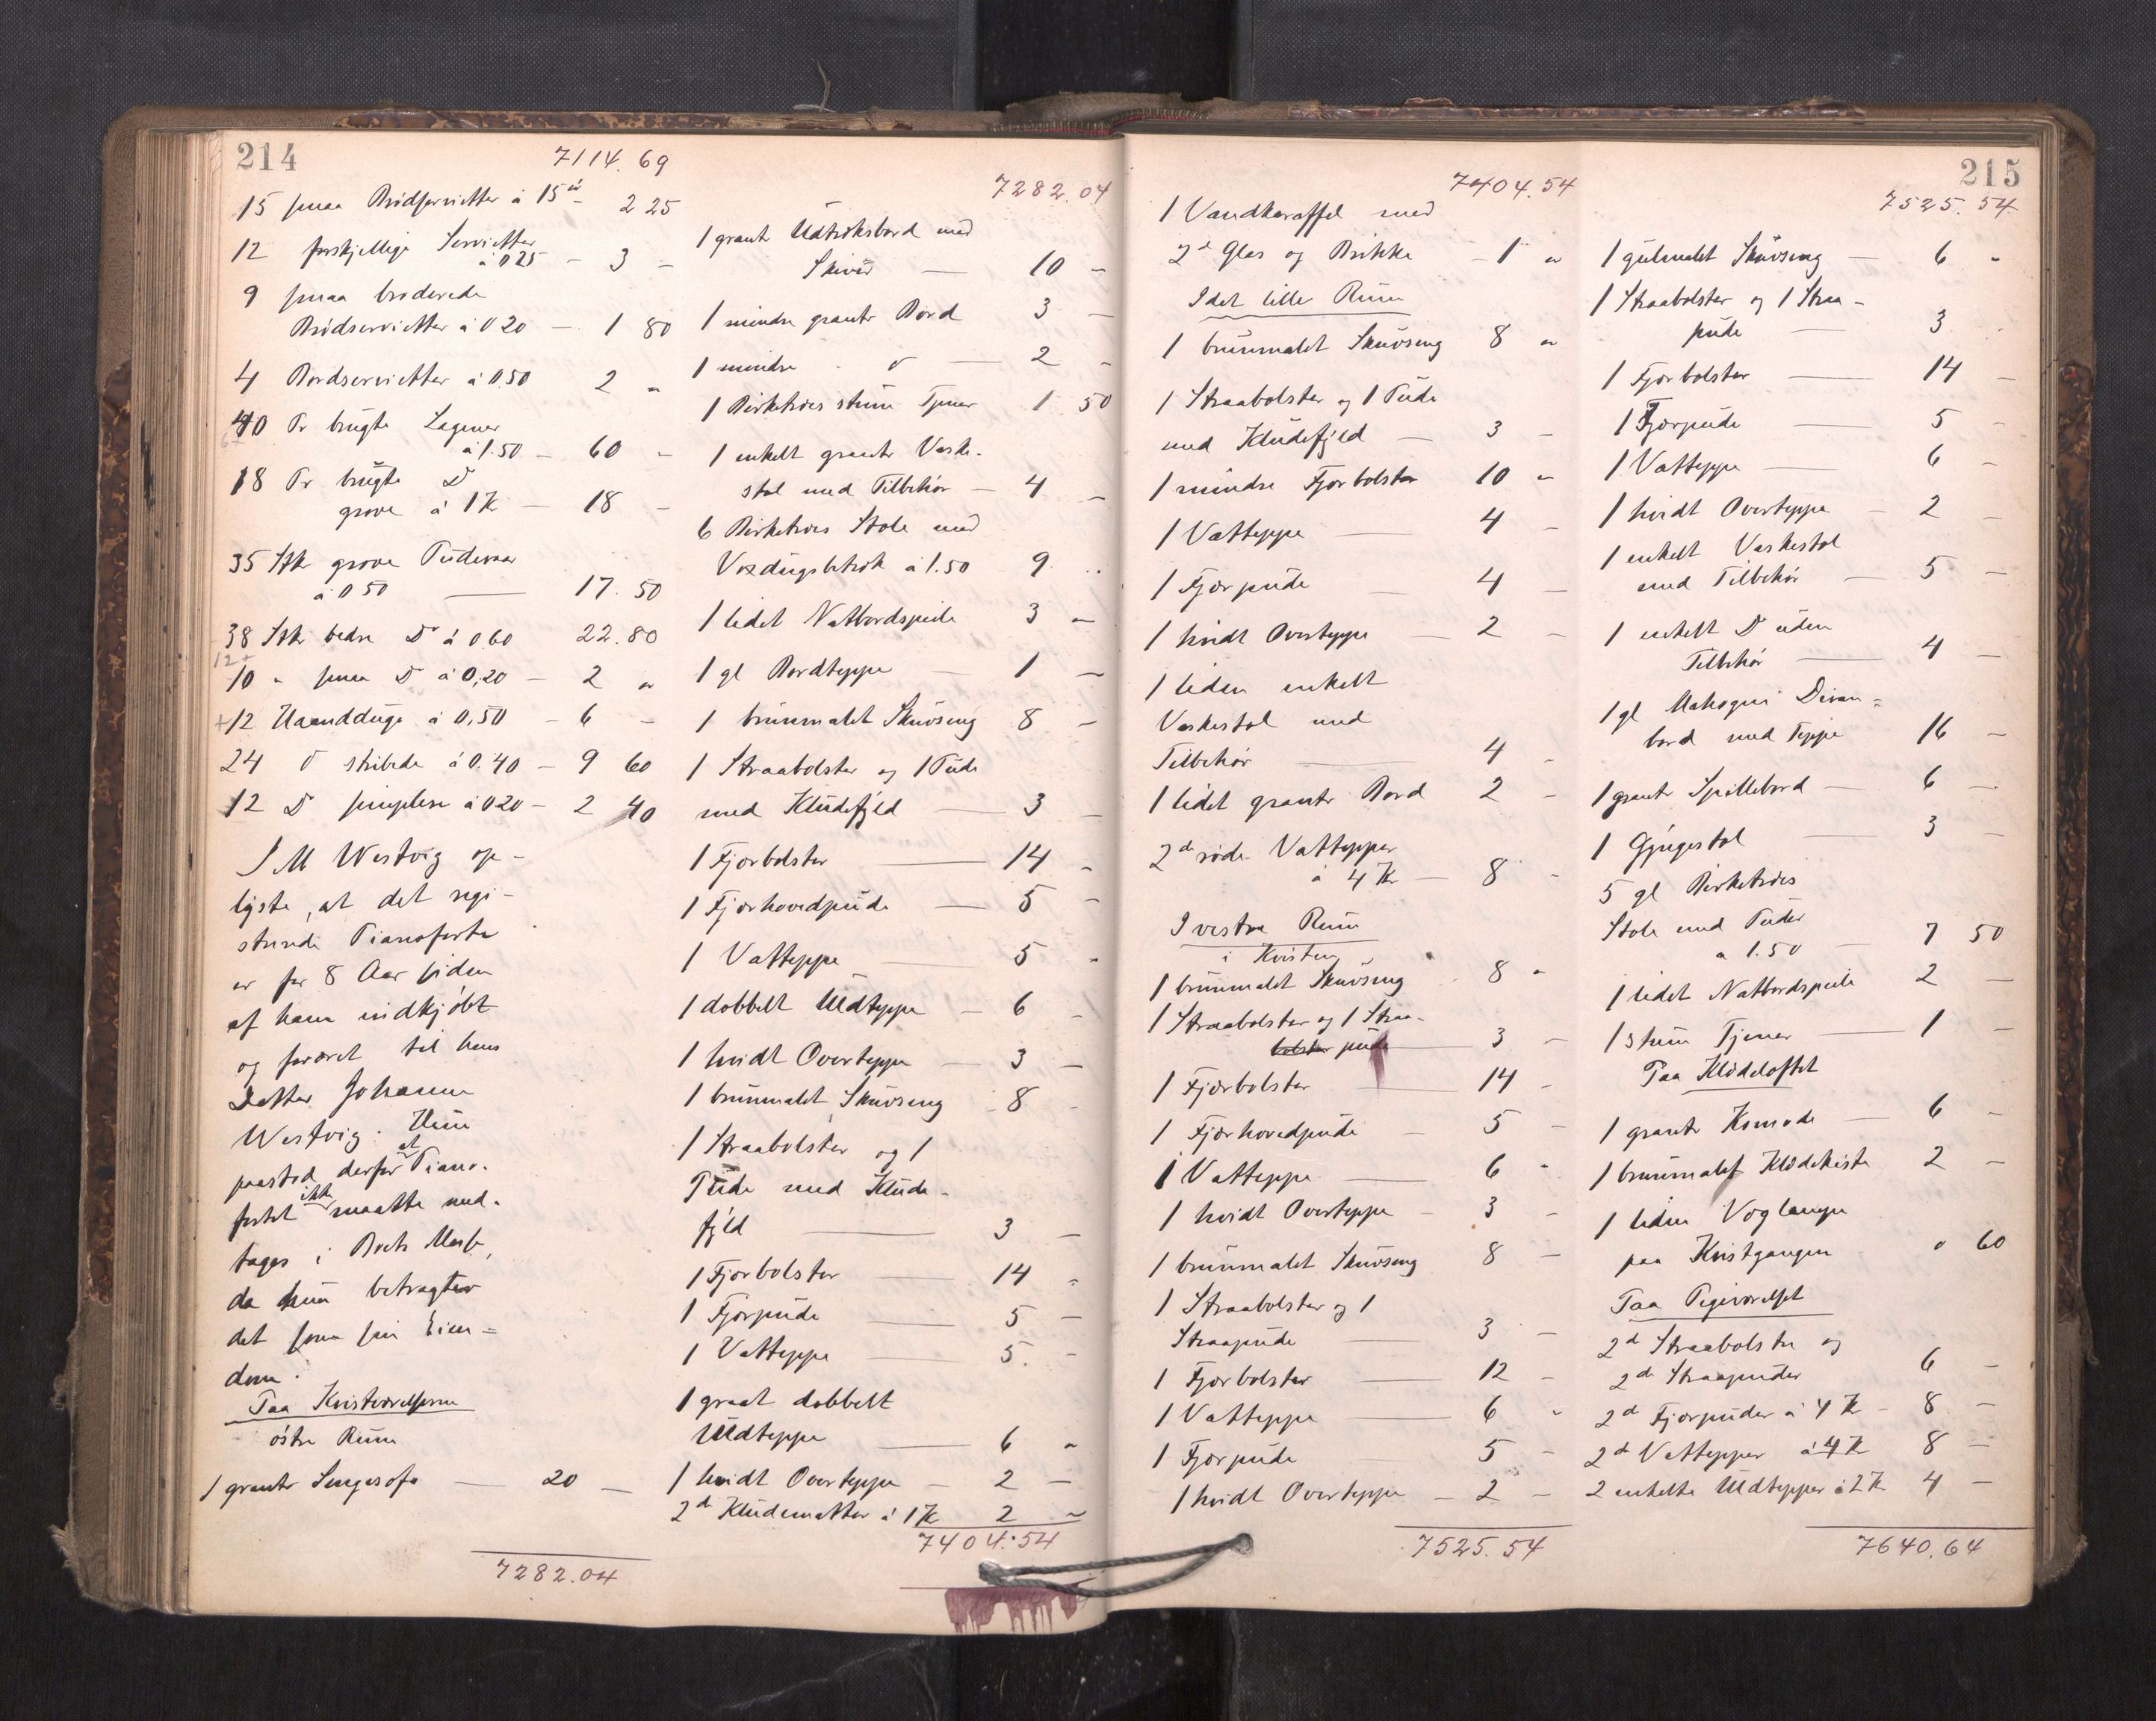 214
7114.69
15 smaa Brødservietter à 15 ø - 2 25
12 forskjellige Servietter
à 0 25 - 3 -
9 smaa broderede
Brødservietter à 0 20 - 1 80
4 Bordservietter à 0.50 2 -
40 Pr brugte Lagener
à 1.50 - 60 -
18 Pr brugte Do
grove à 1 Kr - 18 -
35 Stk grove Pudevaar
à 0 50 - 17.50
38 Stk bedre Do à 0.60 22.80
12+
10 " smaa Do à 0,20 - 2 "
+12 Haandduge à 0,50 - 6 -
24 do stribede à 0.40 - 9 60
12 Do simplere à 0 20 - 2 40
I M Westvig op-
lyste, at det regi-
strerede Pianoforte
er for 8 Aar siden
af ham indkjøbt
og foræret til hans
Datter Johanne
Westvig. Hun
paastod derfor at Piano-
fortet ikke maatte med-
tages i Boets Masse,
da hun betragter
det som sin Eien-
dom.
Paa Kvistværelserne
østre Rum
1 grantr Sengesofa - 20 -
7282.04
7282.04
1 grantr Udtræksbord med
Skiver - 10 -
1 mindre grantr Bord 3 -
1 mindre do - 2 -
1 Birketræes stum Tjener 1 50
1 enkelt grantr Vaske-
stol med Tilbehør - 4 -
6 Birketræes Stole med
Voxdugsbetræk à 1.50 9 -
1 lidet Natbordspeile 3 -
1 gl Bordteppe - 1 -
1 brunmalet Skuvseng 8 -
1 Straabolster og 1 Pude
med Kludefyld - 3 -
1 Fjærbolster - 14 -
1 Fjærhovedpude - 5 -
1 Vatteppe - 5 -
1 dobbelt Uldteppe - 6 -
1 hvidt Overteppe - 3 -
1 brunmalet Skuvseng - 8 -
1 Straabolster og 1
Pude med Klude-
fyld - 3 -
1 Fjærbolster - 14 -
1 Fjærpude - 5 -
1 Vatteppe - 5. -
1 graat dobbelt
Uldteppe - 6 -
1 hvidt Overteppe - 2 -
2de Kludematter à 1 Kr 2 -
7404.54
215
7404.54
1 Vandkaraffel med
2de Glas og Brikke - 1 "
I det lille Rum
1 brunmalet Skuvseng 8 "
1 Straabolster og 1 Pude
med Kludefyld - 3 -
1 mindre Fjærbolster 10 -
1 Vatteppe - 4 -
1 Fjærpude - 4 -
1 hvidt Overteppe - 2 -
1 liden enkelt
Vaskestol med
Tilbehør - 4 -
1 lidet grantr Bord 2 -
2de røde Vattepper
à 4 Kr - 8 -
I vestre Rum
i Kvisten
1 brunmalet Skuvseng 8 -
1 Straabolster og 1 Straa-
bolster pude - 3 -
1 Fjærbolster - 14 -
1 Fjærhovedpude - 5 -
1 Vatteppe - 6 -
1 hvidt Overteppe - 3 -
1 brunmalet Skuvseng 8 -
1 Straabolster og 1
Straapude - 3 -
1 Fjærbolster - 12 -
1 Vatteppe - 6 -
1 Fjærpude - 5 -
1 hvidt Overteppe - 2 -
7525.54
7525.54
1 gulmalet Skuvseng - 6 -
1 Straabolster og 1 Straa-
pude - 3 -
1 Fjærbolster - 14 -
1 Fjærpude - 5 -
1 Vatteppe - 6 -
1 hvidt Overteppe - 2 -
1 enkelt Vaskestol
med Tilbehør - 5 -
1 enkelt Do uden
Tilbehør - 4 -
1 gl Mahogni Divan-
bord med Teppe 16 -
1 grantr Spillebord - 6 -
1 Gyngestol - 3 -
5 gl Birketræes
Stole med Puder
à 1.50 - 7 50
1 lidet Natbordspeile 2 -
1 stum Tjener - 1 -
Paa Klædeloftet
1 grantr Komode - 6 -
1 brunmalet Klædekiste 2 -
1 liden Væglampe
paa Kvistgangen 0 60
Paa Pigeværelset
2de Straabolstre og
2de Straapuder 6 -
2de Fjærpuder à 4 Kr - 8 -
2de Vattepper à 4 Kr 8 -
2 enkelte Uldtepper à 2 Kr 4 -
7640.64